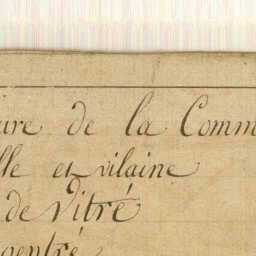 ure de la Comm
lle et vilaine
de vitré
gentré